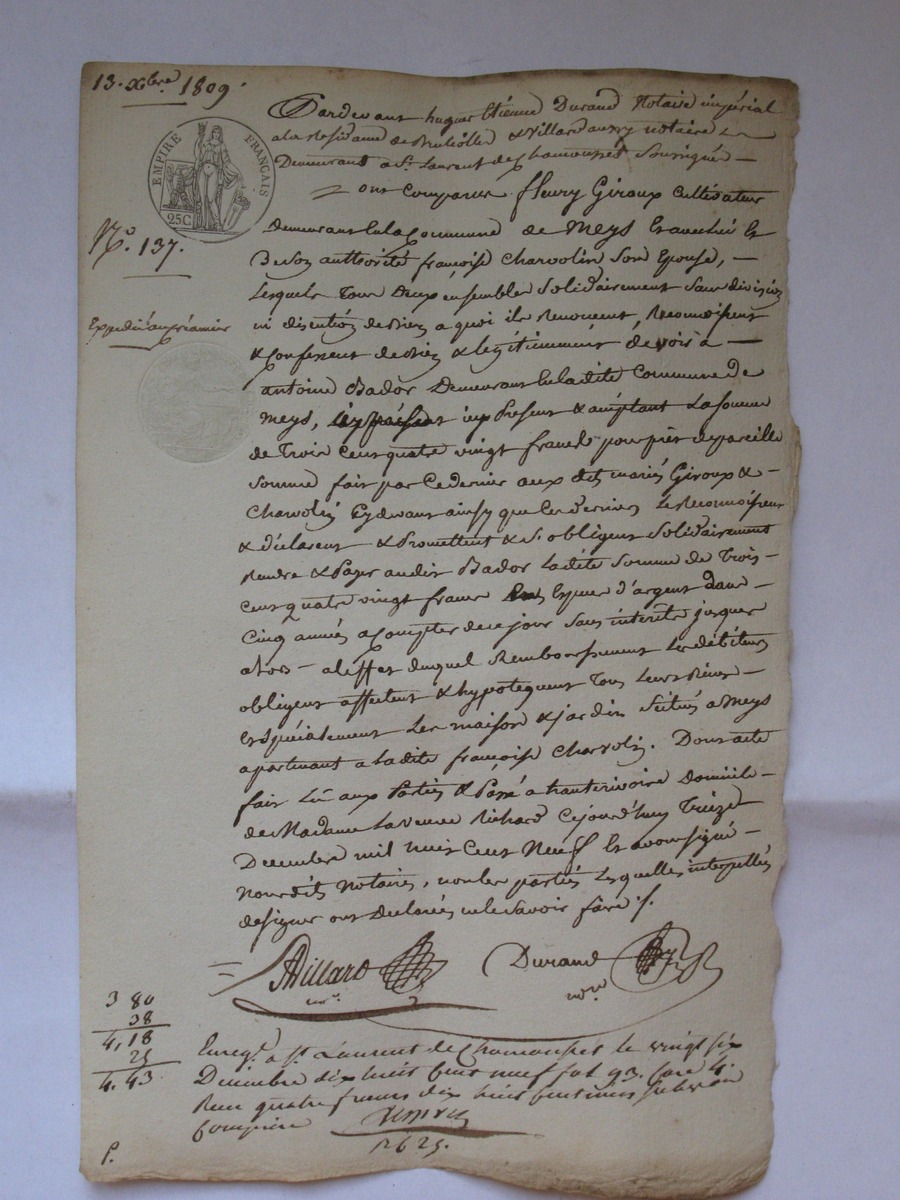 13. Xbre 1809.
EMPIRE FRANÇAIS
25C
No. 137.
Expedié au créancier
Pardevant hugue Etienne Durand Notaire impérial
a la Residance de Brulliolle & Villard aussy notaire
Demeurant a St. Laurent de Chamousset Soussignés —
ont Comparus fleury Giroux Cultivateur
demeurant en la Commune de Meys Et avec lui Et
De son authorité françoise Charvolin Son Epouse, —
Lesquels Tous Deux ensembles Solidairement Sans division
ni discution de biens a quoi ils Renoncent, Reconnoissent
& Confessent de bien & legitimement devoir à —
antoine Bador Demeurant en la dite Commune de
Meys, icy Present & acceptant La Somme
de Trois Cent quatre vingt francs pour prêt de pareille
Somme fait par Ce dernier aux dits mariés Giroux & —
Charvolin Cydevant ainsy que Ces derniers Le Reconnoissent
& déclarent & Promettent & S'obligent Solidairement
Rendre & Payer audit Bador Ladite Somme de Trois —
Cent quatre vingt francs En Espece d'argent dans —
Cinq années a Compter de ce jour Sans intérêts jusques
alors — a l'effet duquel Remboursement Les débiteurs
obligent affectent & hypotequent Tous Leurs Biens —
Et Spécialement Les maison & jardin Situés a Meys
apartenant a Ladite françoise Charvolin. Dont acte
fait Lû aux Parties & Passé a hauterivoire Domicile —
de Madame La Veuve Richard Cejourd'huy Treize
Decembre mil huit Cent Neuf Et avons signé —
Nous dits Notaires, non les parties Lesquelles interpellés
de signer ont Declarés ne le Savoir faire ./.
Villard Durand
nore
3 80
38
4,18
25
4.43
Enregt. a St. Laurent de Chamousset le vingt six
Decembre dix huit Cent neuf fol 93. Case 4.
Reçu quatre francs dix huit Centimes Subvention
Comprise
P.